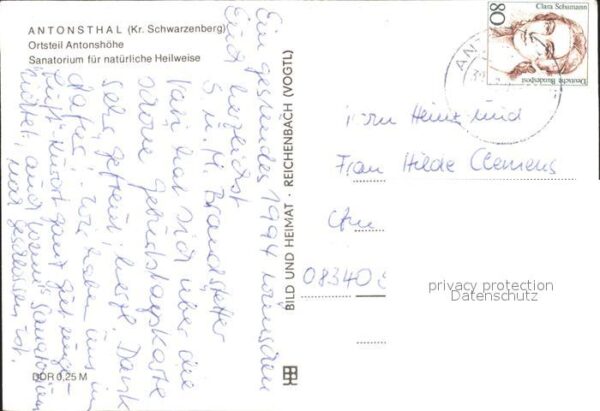 ANTONSTHAL (Kr. Schwarzenberg)
Ortsteil Antonshöhe
Sanatorium für natürliche Heilweise
Ein gesundes 1994 wünschen
Euch herzlichst
S. u. M. Brandstetter
Kati hat sich über die
schöne Geburtstagskarte
sehr gefreut, herzl. Dank
dafür! Wir haben uns im
Luft-Kurort ganz gut
auch wenn's Sanatorium
geschlossen ist.
DDR 0,25 M
BILD UND HEIMAT · REICHENBACH (VOGTL)
80
Clara Schumann
Deutsche Bundespost
AN
Heinz und
Frau Hilde Clemens
08340
privacy protection
Datenschutz